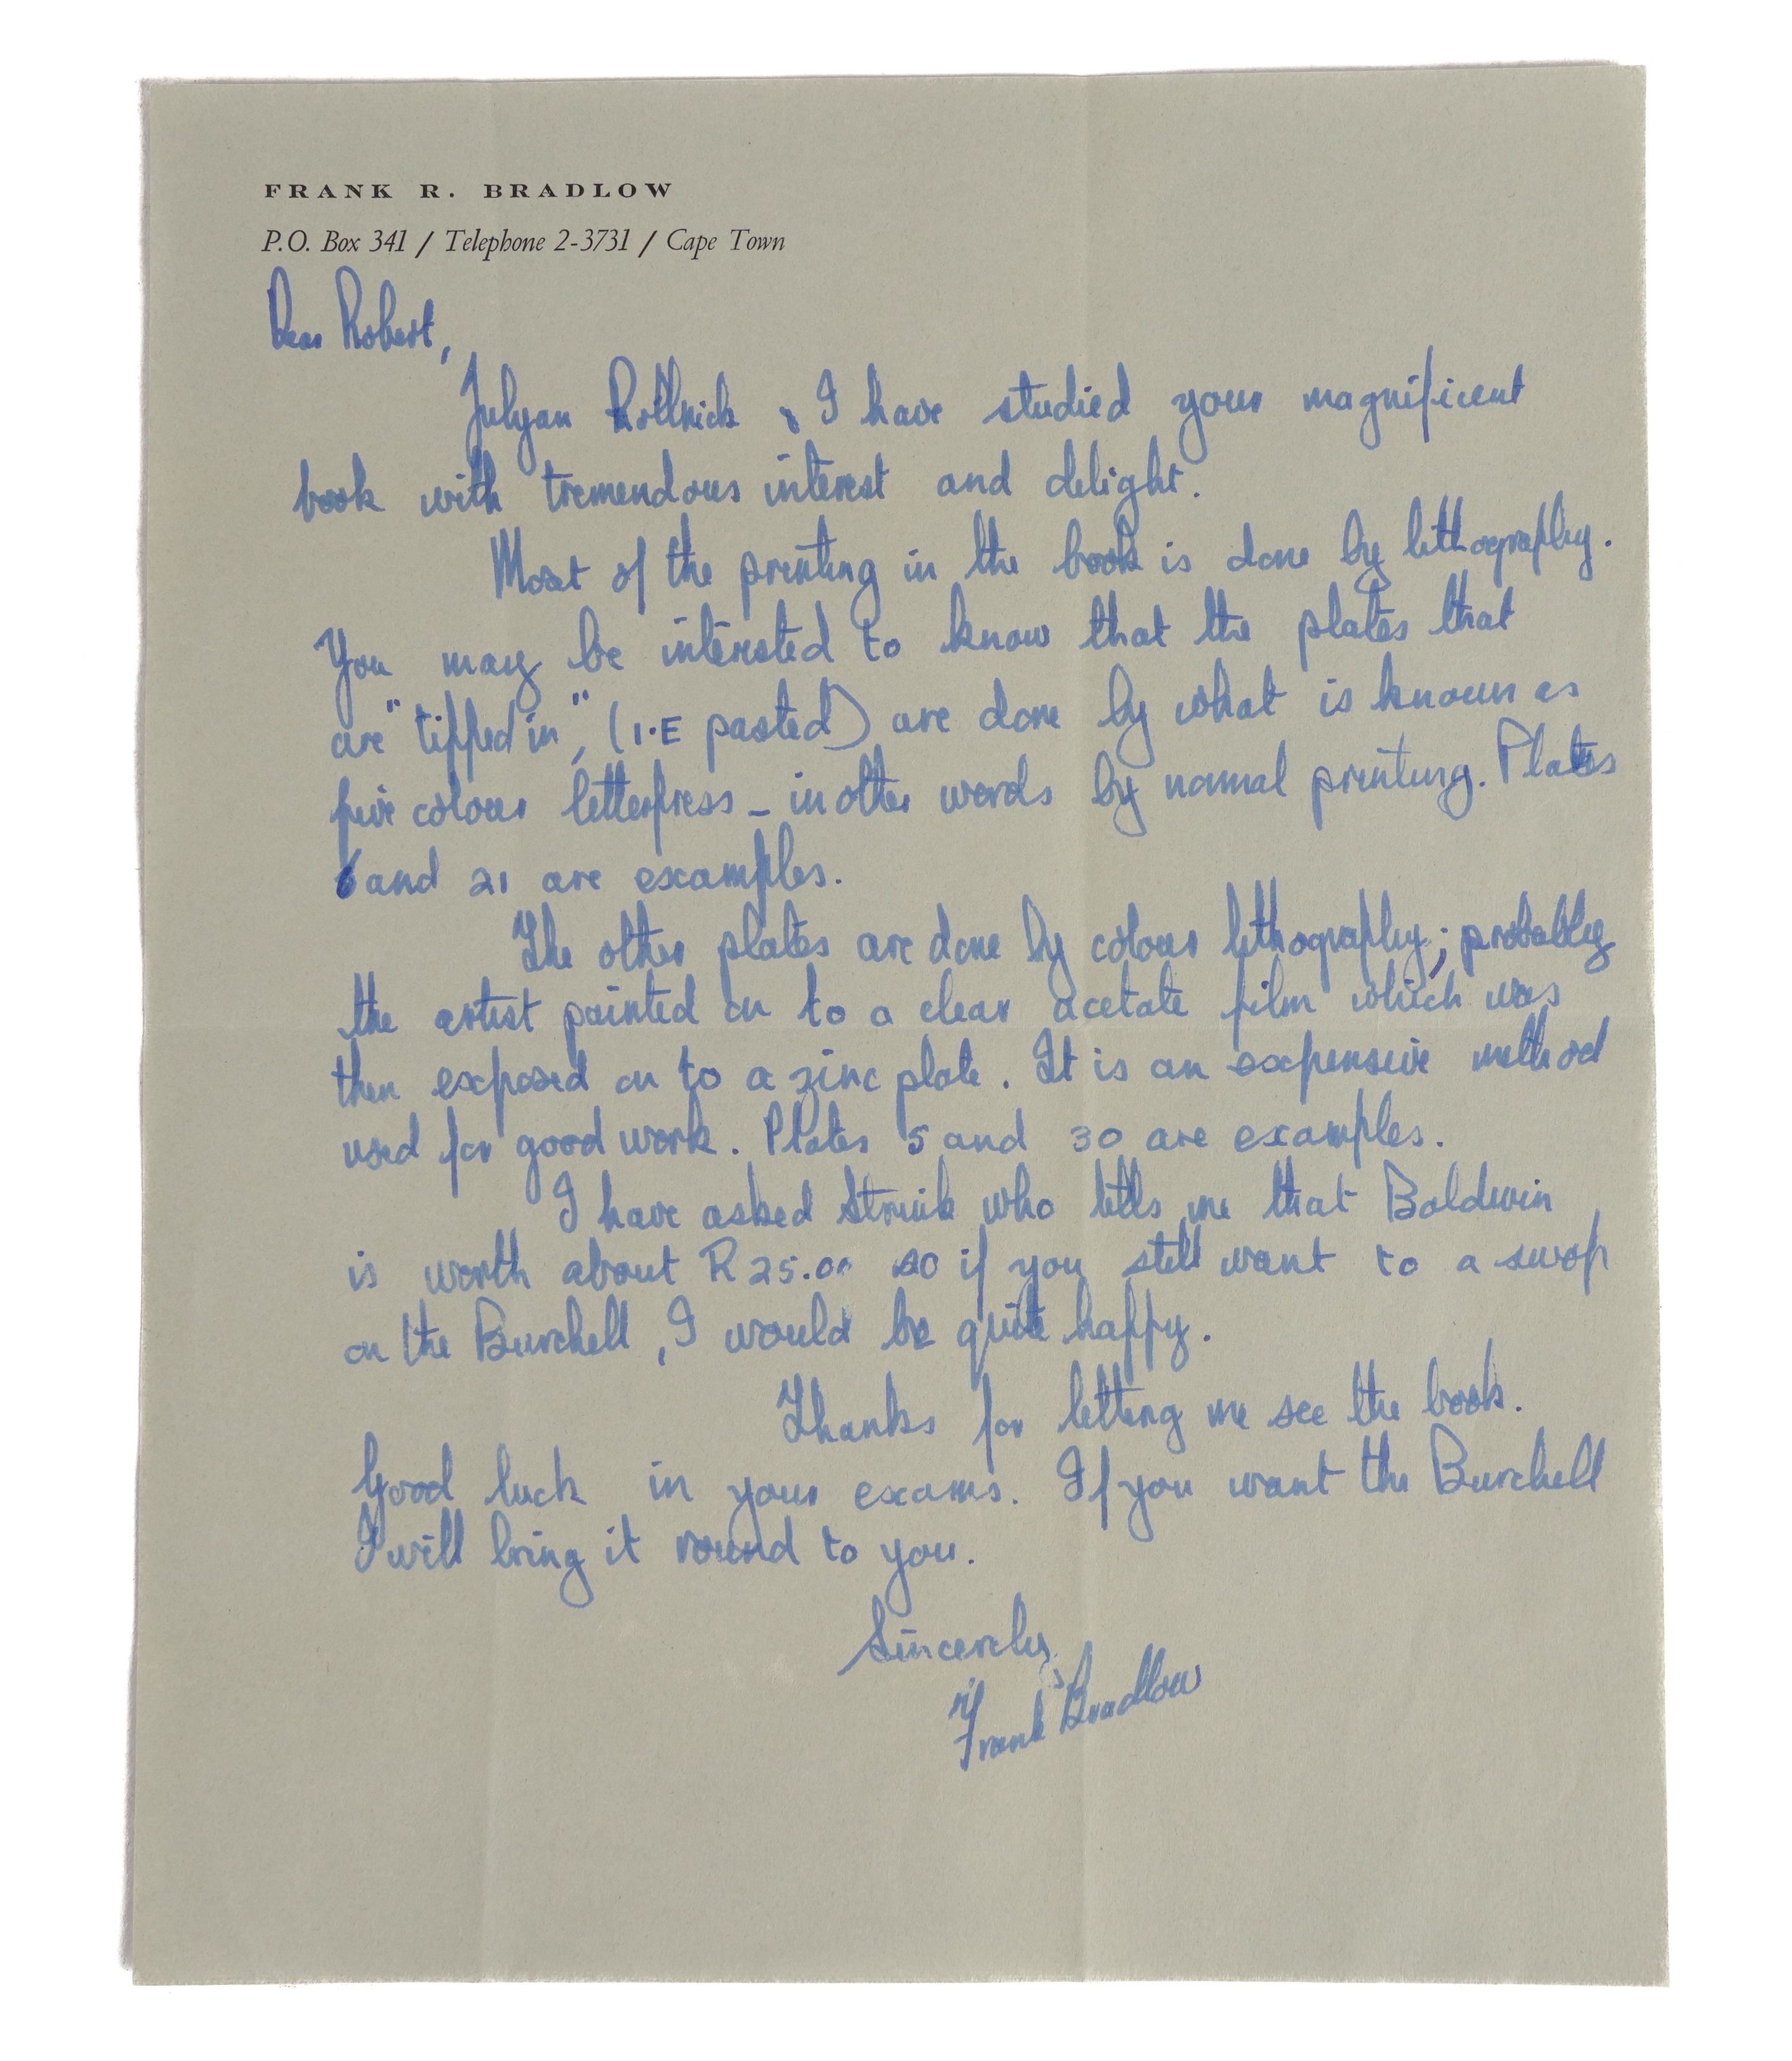 FRANK R. BRADLOW
P.O. Box 341 / Telephone 2-3731 / Cape Town
Dear Robert,
Julyan Rollnick & I have studied your magnificent
book with tremendous interest and delight.
Most of the printing in the book is done by lithography.
You may be interested to know that the plates that
are "tipped in", (I.E pasted) are done by what is known as
five colour letterpress - in other words by normal printing. Plates
6 and 21 are examples.
The other plates are done by colour lithography; probably
the artist painted on to a clear acetate film which was
then exposed on to a zinc plate. It is an expensive method
used for good work. Plates 5 and 30 are examples.
I have asked Struik who tells me that Baldwin
is worth about R25.00 so if you still want to a swop
on the Burchell, I would be quite happy.
Thanks for letting me see the book.
Good luck in your exams. If you want the Burchell
I will bring it round to you.
Sincerely,
Frank Bradlow